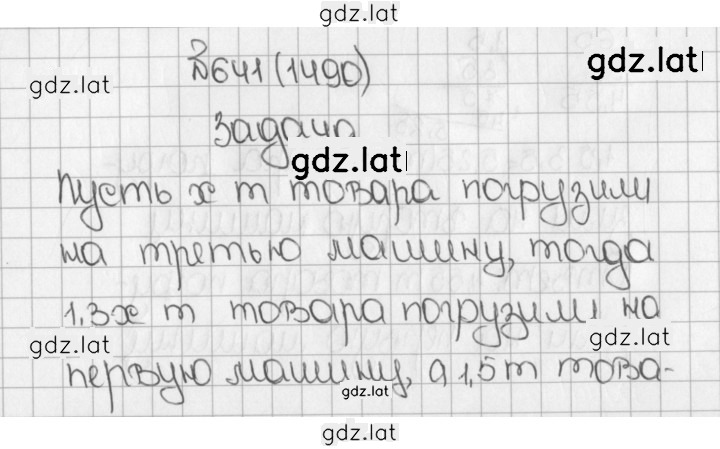 gdz.lat
№641 (1490)
gdz.lat
gdz.lat
Задача
gdz.lat
Пусть x т товара погрузили
на третью машину, тогда
1,3x т товара погрузили на
gdz.lat
gdz.lat
первую машину, а 1,5 т това-
gdz.lat
gdz.lat